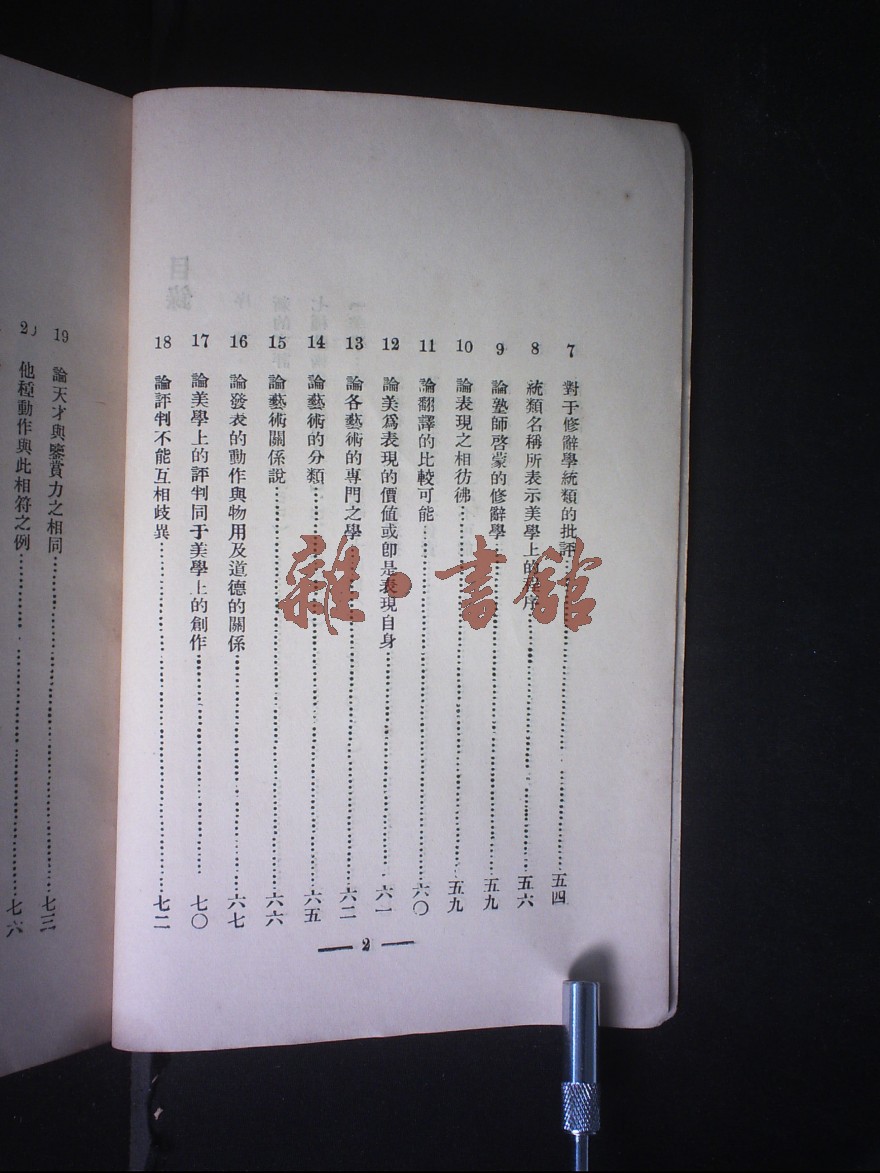 7 對于修辭學統類的批評 五四
8 統類名稱所表示美學上的程序 五六
9 論塾師啓蒙的修辭學 五九
10 論表現之相彷彿 五九
11 論翻譯的比較可能 六〇
12 論美爲表現的價值或卽是表現自身 六一
13 論各藝術的專門之學 六二
14 論藝術的分類 六五
15 論藝術關係說 六六
16 論發表的動作與物用及道德的關係 六七
17 論美學上的評判同于美學上的創作 七〇
18 論評判不能互相歧異 七二
— 2 —
19 論天才與鑒賞力之相同 七三
20 他種動作與此相符之例 七六
雜·書館
目錄